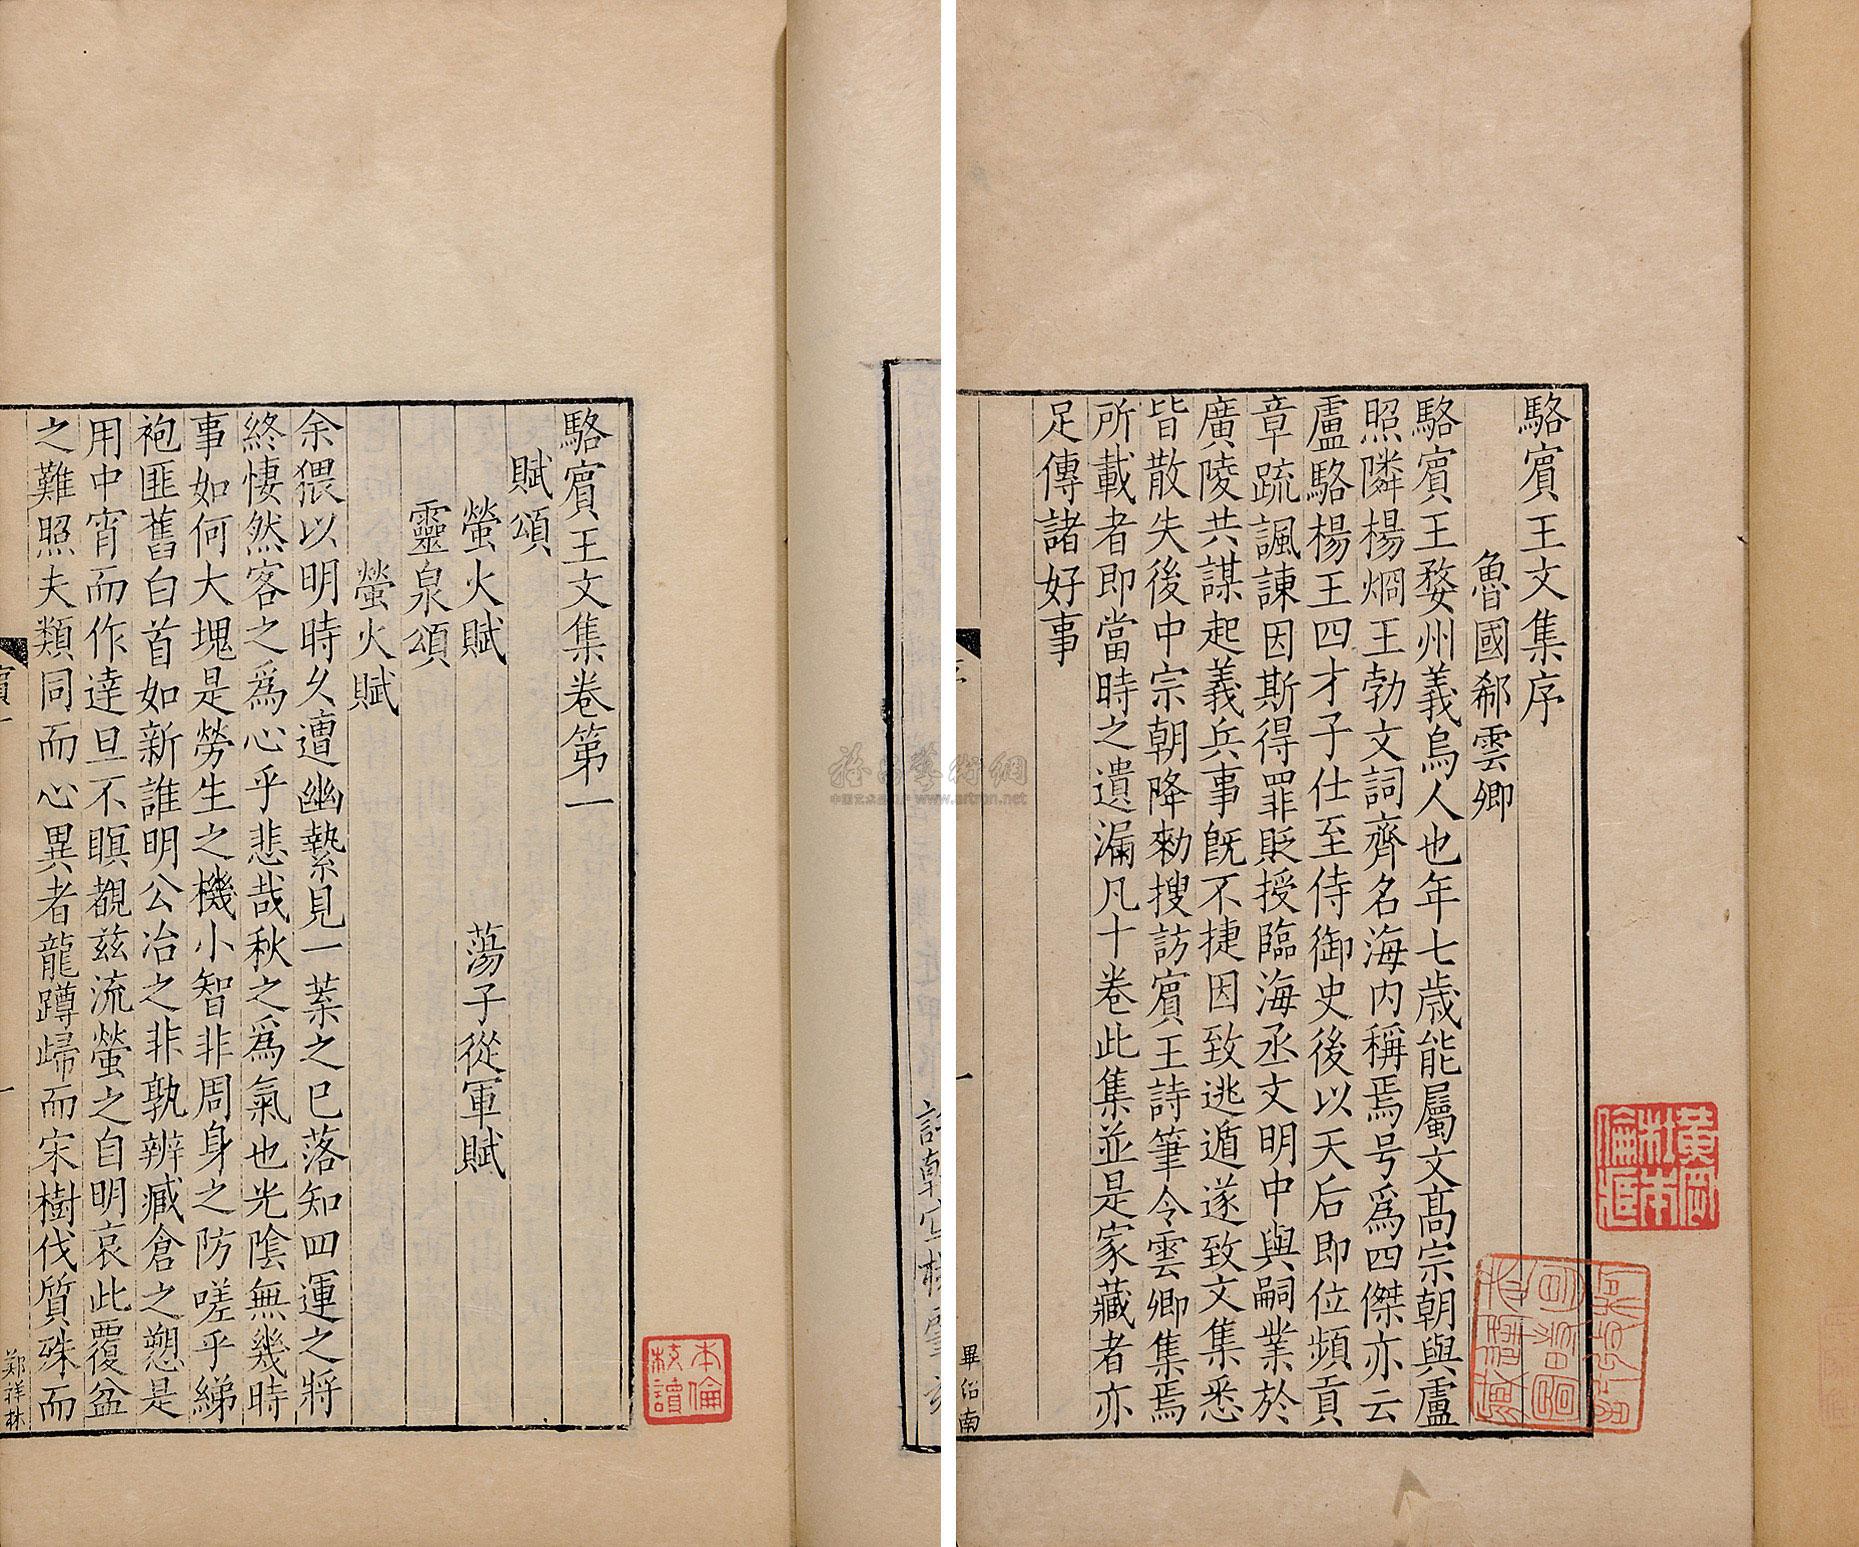 駱賔王文集序
魯國郗雲卿
駱賔王婺州義烏人也年七歲能屬文高宗朝與盧
照隣楊烱王勃文詞齊名海内稱焉号爲四傑亦云
盧駱楊王四才子仕至侍御史後以天后即位頻貢
章疏諷諫因斯得罪貶授臨海丞文明中與嗣業於
廣陵共謀起義兵事旣不捷因致逃遁遂致文集悉
皆散失後中宗朝降勑搜訪賔王詩筆令雲卿集焉
所載者即當時之遺漏凡十卷此集並是家藏者亦
足傳諸好事
一
畢紹南
黃岡
杜本
倫匭
駱賔王文集卷第一
賦頌
螢火賦 蕩子從軍賦
靈泉頌
螢火賦
余猥以明時久遭幽縶見一葉之已落知四運之將
終悽然客之爲心乎悲哉秋之爲氣也光陰無幾時
事如何大塊是勞生之機小智非周身之防嗟乎綈
袍匪舊白首如新誰明公冶之非孰辨臧倉之愬是
用中宵而作達旦不瞑覩茲流螢之自明哀此覆盆
之難照夫類同而心異者龍蹲歸而宋樹伐質殊而
賔一
一
郑祥林
本倫
校讀
www.artron.net